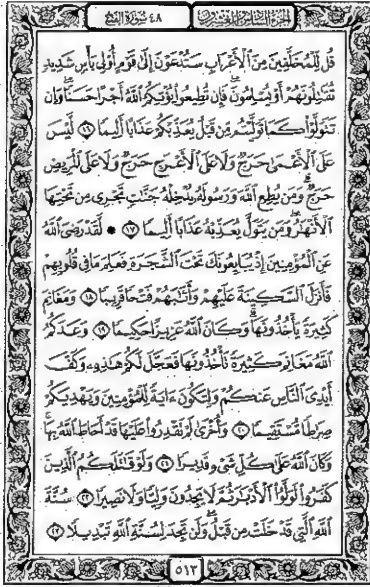 الجزء السادس والعشرون ٤٨ سورة الفتح
قُل لِّلْمُخَلَّفِينَ مِنَ ٱلْأَعْرَابِ سَتُدْعَوْنَ إِلَىٰ قَوْمٍ أُو۟لِى بَأْسٍ شَدِيدٍ
تُقَٰتِلُونَهُمْ أَوْ يُسْلِمُونَ ۖ فَإِن تُطِيعُوا۟ يُؤْتِكُمُ ٱللَّهُ أَجْرًا حَسَنًا ۖ وَإِن
تَتَوَلَّوْا۟ كَمَا تَوَلَّيْتُم مِّن قَبْلُ يُعَذِّبْكُمْ عَذَابًا أَلِيمًا ﴿١٦﴾ لَّيْسَ
عَلَى ٱلْأَعْمَىٰ حَرَجٌ وَلَا عَلَى ٱلْأَعْرَجِ حَرَجٌ وَلَا عَلَى ٱلْمَرِيضِ
حَرَجٌ ۗ وَمَن يُطِعِ ٱللَّهَ وَرَسُولَهُۥ يُدْخِلْهُ جَنَّٰتٍ تَجْرِى مِن تَحْتِهَا
ٱلْأَنْهَٰرُ ۖ وَمَن يَتَوَلَّ يُعَذِّبْهُ عَذَابًا أَلِيمًا ﴿١٧﴾ ۞ لَّقَدْ رَضِىَ ٱللَّهُ
عَنِ ٱلْمُؤْمِنِينَ إِذْ يُبَايِعُونَكَ تَحْتَ ٱلشَّجَرَةِ فَعَلِمَ مَا فِى قُلُوبِهِمْ
فَأَنزَلَ ٱلسَّكِينَةَ عَلَيْهِمْ وَأَثَٰبَهُمْ فَتْحًا قَرِيبًا ﴿١٨﴾ وَمَغَانِمَ
كَثِيرَةً يَأْخُذُونَهَا ۗ وَكَانَ ٱللَّهُ عَزِيزًا حَكِيمًا ﴿١٩﴾ وَعَدَكُمُ
ٱللَّهُ مَغَانِمَ كَثِيرَةً تَأْخُذُونَهَا فَعَجَّلَ لَكُمْ هَٰذِهِۦ وَكَفَّ
أَيْدِىَ ٱلنَّاسِ عَنكُمْ وَلِتَكُونَ ءَايَةً لِّلْمُؤْمِنِينَ وَيَهْدِيَكُمْ
صِرَٰطًا مُّسْتَقِيمًا ﴿٢٠﴾ وَأُخْرَىٰ لَمْ تَقْدِرُوا۟ عَلَيْهَا قَدْ أَحَاطَ ٱللَّهُ بِهَا ۚ
وَكَانَ ٱللَّهُ عَلَىٰ كُلِّ شَىْءٍ قَدِيرًا ﴿٢١﴾ وَلَوْ قَٰتَلَكُمُ ٱلَّذِينَ
كَفَرُوا۟ لَوَلَّوُا۟ ٱلْأَدْبَٰرَ ثُمَّ لَا يَجِدُونَ وَلِيًّا وَلَا نَصِيرًا ﴿٢٢﴾ سُنَّةَ
ٱللَّهِ ٱلَّتِى قَدْ خَلَتْ مِن قَبْلُ ۖ وَلَن تَجِدَ لِسُنَّةِ ٱللَّهِ تَبْدِيلًا ﴿٢٣﴾
٥١٣